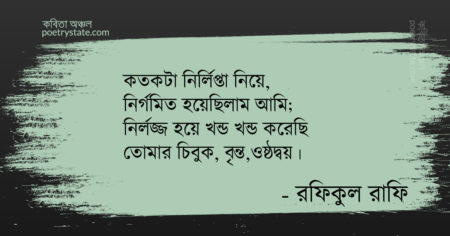 কবিতা অঞ্চল
poetrystate.com
কতকটা নির্লিপ্তা নিয়ে,
নির্গমিত হয়েছিলাম আমি;
নির্লজ্জ হয়ে খন্ড খন্ড করেছি
তোমার চিবুক, বৃন্ত,ওষ্ঠদ্বয়।
- রফিকুল রাফি